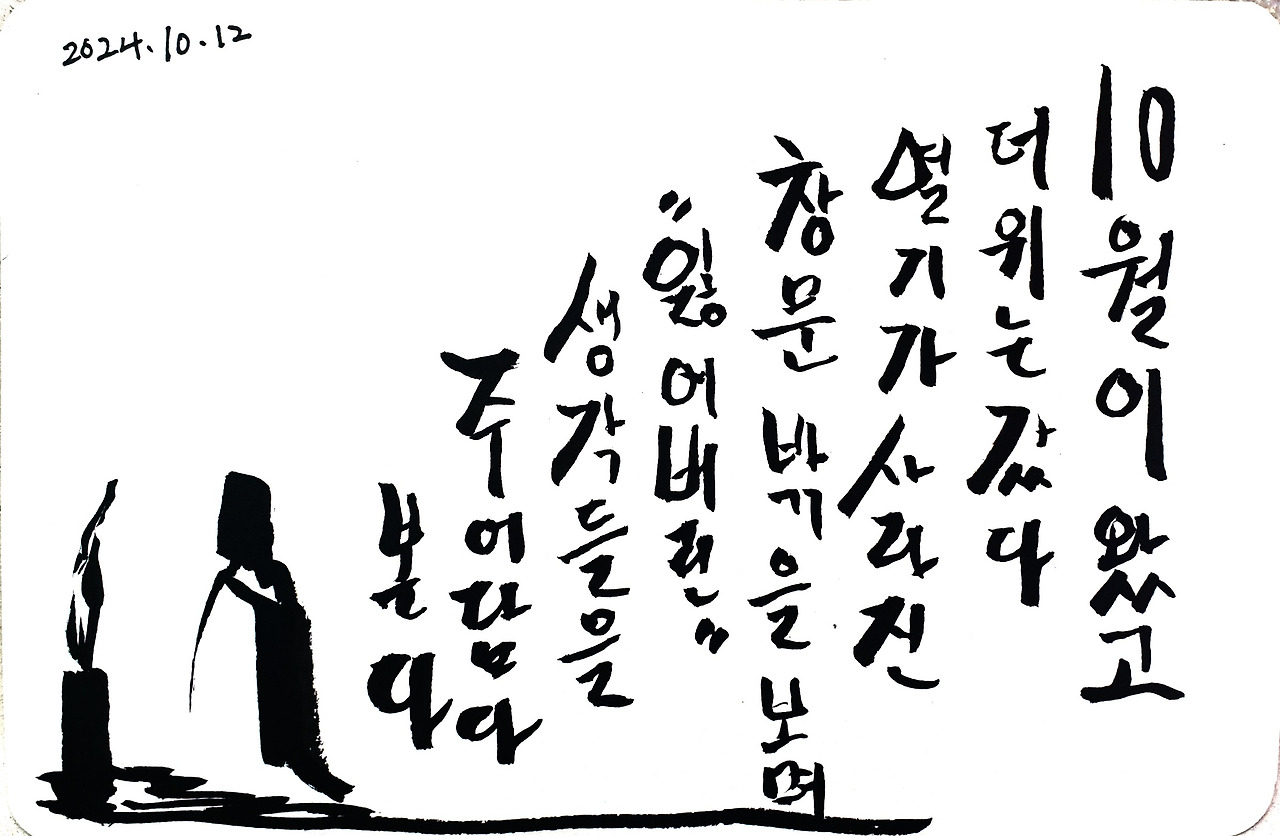 2024.10.12
10월이 왔고
더위는 갔다
열기가 사라진
창문 밖을 보며
"잃어버린"
생각들을
주어담다
본다